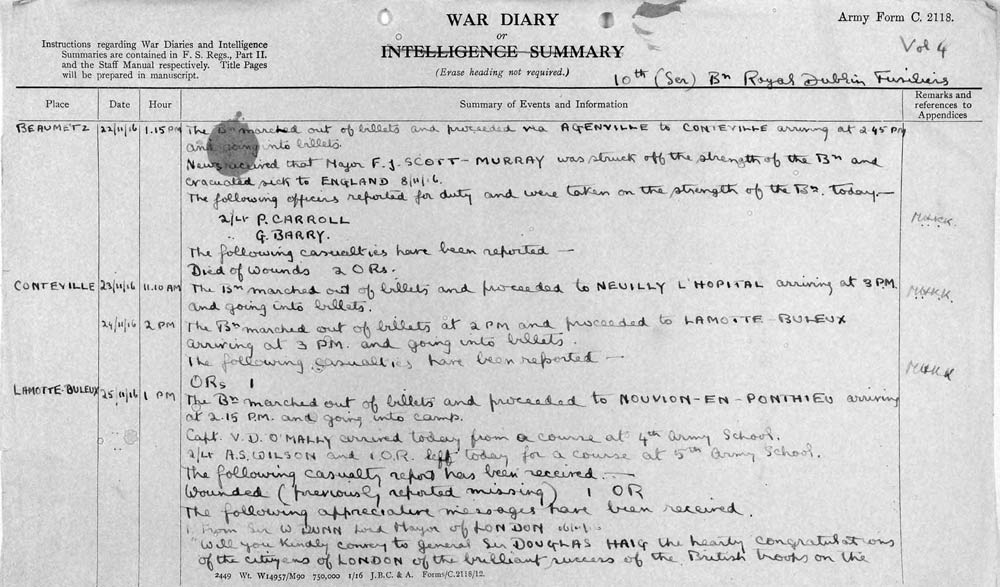 WAR DIARY
or
INTELLIGENCE SUMMARY
(Erase heading not required.)
Army Form C. 2118.
Vol 4
Instructions regarding War Diaries and Intelligence
Summaries are contained in F. S. Regs., Part II.
and the Staff Manual respectively. Title Pages
will be prepared in manuscript.
10th (Ser) Bn Royal Dublin Fusiliers
Place Date Hour Summary of Events and Information Remarks and references to Appendices
BEAUMETZ 22/11/16 1.15 PM The Bn marched out of billets and proceeded via AGENVILLE to CONTEVILLE arriving at 2.45 PM
and going into billets.
News received that Major F.J. SCOTT-MURRAY was struck off the strength of the Bn and
evacuated sick to ENGLAND 8/11/16.
The following officers reported for duty and were taken on the strength of the Bn. today.—
2/Lt P. CARROLL
" G. BARRY.
The following casualties have been reported —
Died of Wounds 2 ORs.
CONTEVILLE 23/11/16 11.10 AM The Bn marched out of billets and proceeded to NEUILLY L'HOPITAL arriving at 3 P.M.
and going into billets.
24/11/16 2 PM The Bn marched out of billets at 2 PM and proceeded to LAMOTTE-BULEUX
arriving at 3 PM. and going into billets.
The following casualties have been reported —
ORs 1
LAMOTTE-BULEUX 25/11/16 1 PM The Bn marched out of billets and proceeded to NOUVION-EN-PONTHIEU arriving
at 2.15 P.M. and going into camp.
Capt. V. D. O'MALLY arrived today from a course at 4th Army School.
2/Lt A.S. WILSON and 1.O.R. left today for a course at 5th Army School.
The following casualty report has been received.—
Wounded (previously reported missing) 1 OR
The following appreciative messages have been received.
1. From Sir W DUNN Lord Mayor of LONDON
"Will you kindly convey to general Sir DOUGLAS HAIG the hearty congratulations
of the citizens of LONDON of the brilliant success of the British troops on the
2449 Wt. W14957/M90 750,000 1/16 J.B.C. & A. Forms/C.2118/12.